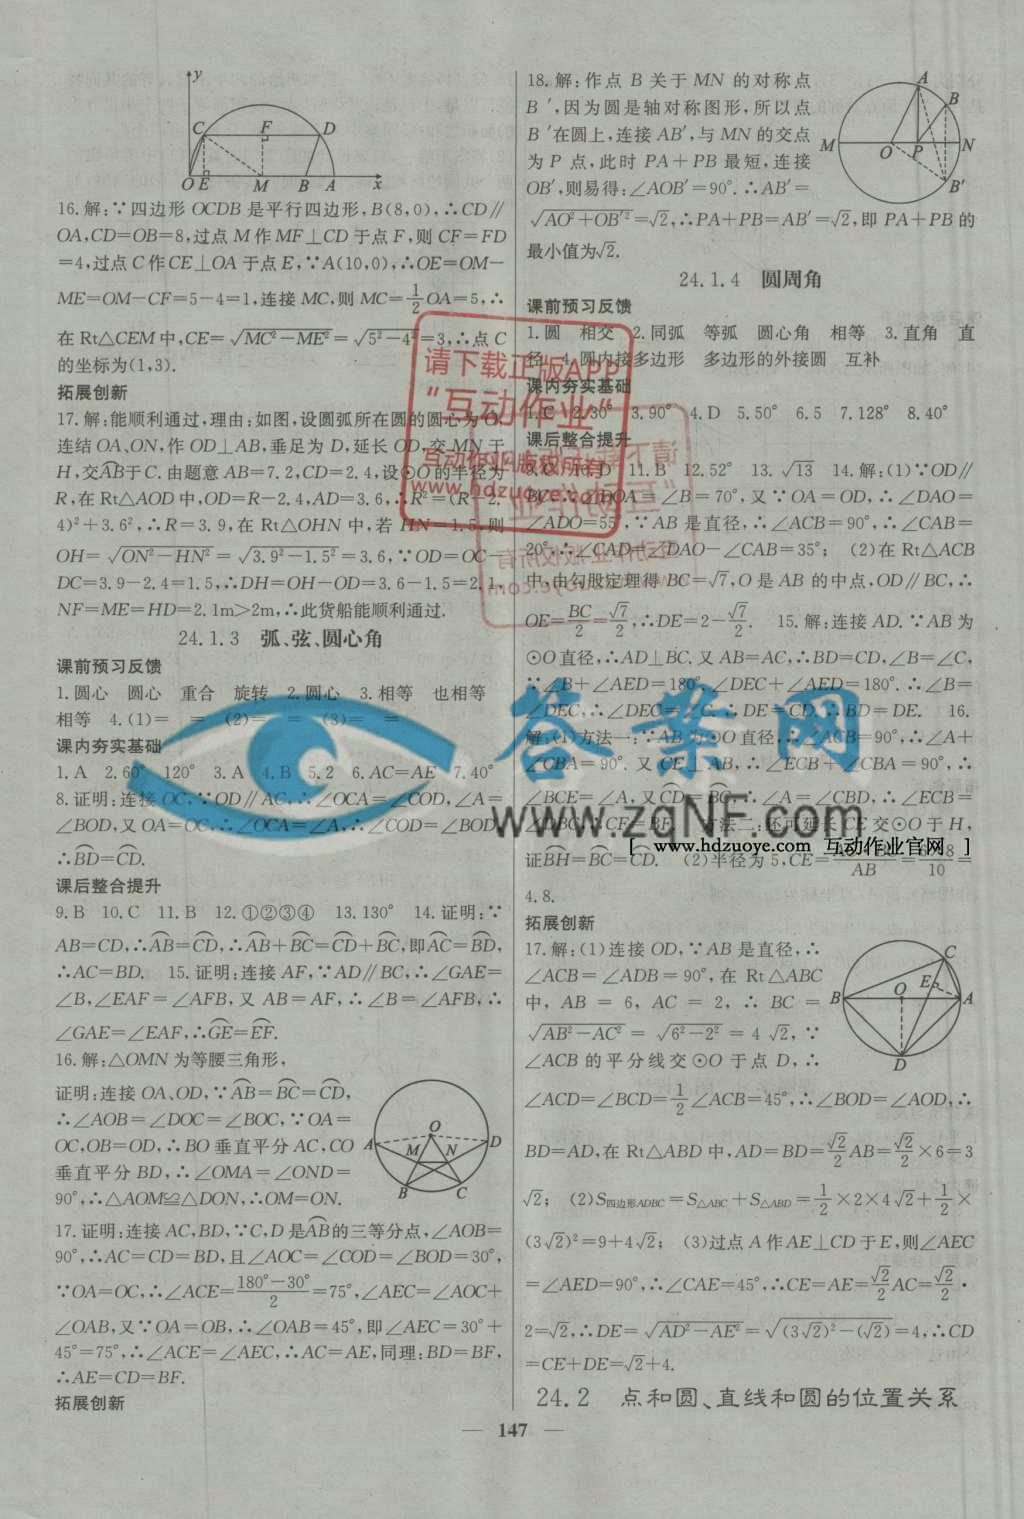 y
C F D
O E M B A x
16.解:∵四边形 OCDB 是平行四边形,B(8,0),∴CD∥
OA,CD=OB=8,过点 M 作 MF⊥CD 于点 F,则 CF=FD
=4,过点 C 作 CE⊥OA 于点 E,∵A(10,0),∴OE=OM-
ME=OM-CF=5-4=1,连接 MC,则 MC=1/2 OA=5,∴
在 Rt△CEM 中,CE=√(MC²-ME²)=√(5²-4²)=3,∴点 C
的坐标为(1,3).
拓展创新
17.解:能顺利通过,理由:如图,设圆弧所在圆的圆心为 O.
连结 OA、ON,作 OD⊥AB,垂足为 D,延长 OD,交 MN 于
H,交⌒AB于 C.由题意 AB=7.2,CD=2.4,设⊙O 的半径为
R,在 Rt△AOD 中,OD=R-2.4,AD=3.6,∴R²=(R-2.
4)²+3.6²,∴R=3.9,在 Rt△OHN 中,若 HN=1.5,则
OH=√(ON²-HN²)=√(3.9²-1.5²)=3.6,∵OD=OC-
DC=3.9-2.4=1.5,∴DH=OH-OD=3.6-1.5=2.1,
NF=ME=HD=2.1m>2m,∴此货船能顺利通过.
24.1.3 弧、弦、圆心角
课前预习反馈
1.圆心 圆心 重合 旋转 2.圆心 3.相等 也相等
相等 4.(1)= = (2)= = (3)= =
课内夯实基础
1.A 2.60° 120° 3.A 4.B 5.2 6.AC=AE 7.40°
8.证明:连接 OC,∵OD∥AC,∴∠OCA=∠COD,∠A=
∠BOD,又 OA=OC,∴∠OCA=∠A,∴∠COD=∠BOD
∴⌒BD=⌒CD.
课后整合提升
9.B 10.C 11.B 12.①②③④ 13.130° 14.证明:∵
AB=CD,∴⌒AB=⌒CD,∴⌒AB+⌒BC=⌒CD+⌒BC,即⌒AC=⌒BD,
∴AC=BD. 15.证明:连接 AF,∵AD∥BC,∴∠GAE=
∠B,∠EAF=∠AFB,又 AB=AF,∴∠B=∠AFB,∴
∠GAE=∠EAF,∴⌒GE=⌒EF.
16.解:△OMN 为等腰三角形,
证明:连接 OA、OD,∵⌒AB=⌒BC=⌒CD,
∴∠AOB=∠DOC=∠BOC,∵OA=
OC,OB=OD,∴BO 垂直平分 AC,CO
垂直平分 BD,∴∠OMA=∠OND=
90°,∴△AOM≌△DON,∴OM=ON.
O
A M N D
B C
17.证明:连接 AC,BD,∵C,D 是⌒AB的三等分点,∠AOB=
90°,∴AC=CD=BD,且∠AOC=∠COD=∠BOD=30°,
∵OA=OC,∴∠ACE=(180°-30°)/2=75°,∠AEC=∠AOC+
∠OAB,又∵OA=OB,∴∠OAB=45°,即∠AEC=30°+
45°=75°,∴∠ACE=∠AEC,∴AC=AE,同理:BD=BF,
∴AE=CD=BF.
拓展创新
18.解:作点 B 关于 MN 的对称点
B′,因为圆是轴对称图形,所以点
B′在圆上,连接 AB′,与 MN 的交点
为 P 点,此时 PA+PB 最短,连接
OB′,则易得:∠AOB′=90°.∴AB′=
√(AO²+OB′²)=√2,∴PA+PB=AB′=√2,即 PA+PB 的
最小值为√2.
A
B
M O P N
B′
24.1.4 圆周角
课前预习反馈
1.圆 相交 2.同弧 等弧 圆心角 相等 3.直角 直
径 4.圆内接多边形 多边形的外接圆 互补
课内夯实基础
1.C 2.30° 3.90° 4.D 5.50° 6.5 7.128° 8.40°
课后整合提升
10.D 11.B 12.52° 13.√13 14.解:(1)∵OD∥
BC,∴∠DOA=∠B=70°.又∵OA=OD,∴∠DAO=
∠ADO=55°,∵AB 是直径,∴∠ACB=90°,∴∠CAB=
20°,∴∠CAD=∠DAO-∠CAB=35°; (2)在 Rt△ACB
中,由勾股定理得 BC=√7,O 是 AB 的中点,OD∥BC,∴
OE=BC/2=√7/2,∴DE=2-√7/2. 15.解:连接 AD.∵AB 为
⊙O 直径,∴AD⊥BC.又 AB=AC,∴BD=CD,∠B=∠C,
∵∠B+∠AED=180°,∠DEC+∠AED=180°.∴∠B=
∠DEC,∴∠DEC=∠C.∴DE=CD.∴BD=DE. 16.
解:(1)方法一:∵AB 为⊙O 直径,∴∠ACB=90°,∴∠A+
∠CBA=90°.又 CE⊥AB,∴∠ECB+∠CBA=90°,∴
∠BCE=∠A,又⌒CD=⌒BC,∴∠A=∠CBD,∴∠ECB=
∠DBC,∴CF=BF. 方法二:还可延长 CE 交⊙O 于 H,
证⌒BH=⌒BC=⌒CD. (2)半径为 5,CE=
4.8.
拓展创新
17.解:(1)连接 OD,∵AB 是直径,∴
∠ACB=∠ADB=90°,在 Rt△ABC
中,AB=6,AC=2,∴BC=
√(AB²-AC²)=√(6²-2²)=4√2,∵
∠ACB 的平分线交⊙O 于点 D,∴
C
E
B O A
D
∠ACD=∠BCD=1/2∠ACB=45°,∴∠BOD=∠AOD,∴
BD=AD,在 Rt△ABD 中,AD=BD=√2/2 AB=√2/2×6=3
√2; (2)S四边形ADBC=S△ABC+S△ABD=1/2×2×4√2+1/2×
(3√2)²=9+4√2; (3)过点 A 作 AE⊥CD 于 E,则∠AEC
=∠AED=90°,∴∠CAE=45°,∴CE=AE=√2/2 AC=√2/2·
2=√2,∴DE=√(AD²-AE²)=√((3√2)²-(√2)²)=4,∴CD
=CE+DE=√2+4.
24.2 点和圆、直线和圆的位置关系
— 147 —
请下载正版APP
“互动作业”
互动作业APP版权所有
www.hdzuoye.com
答案网
www.zqNF.com
[ www.hdzuoye.com 互动作业官网 ]